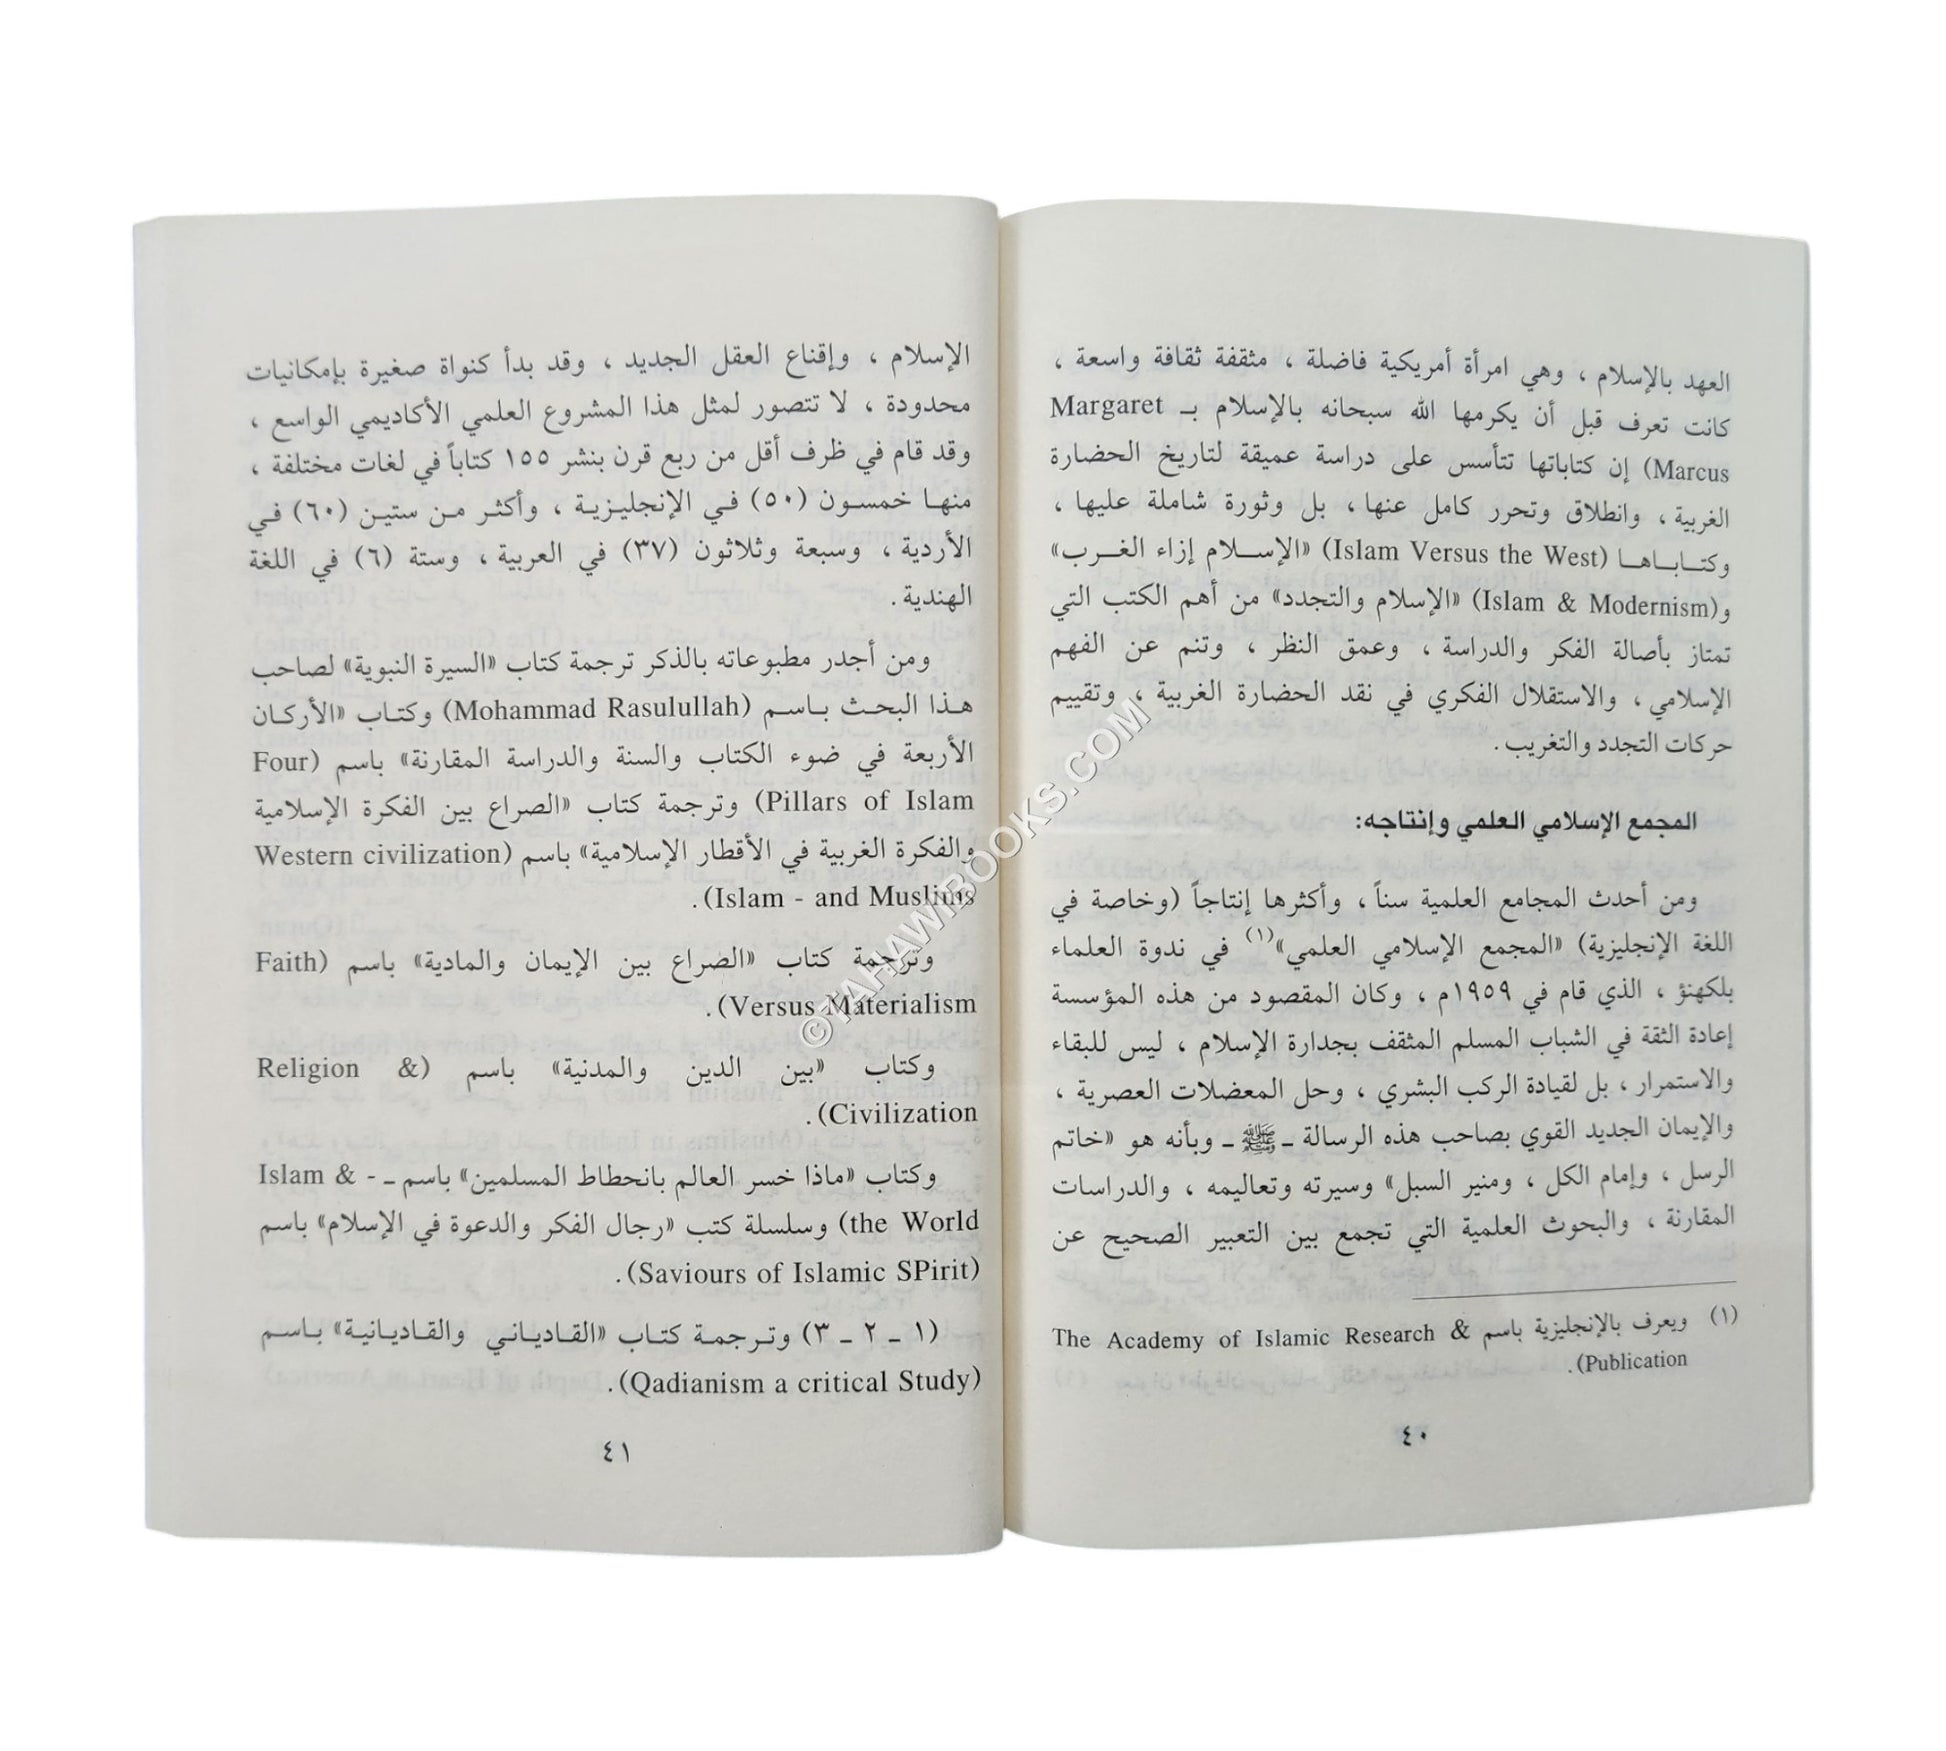 العهد بالإسلام ، وهي امرأة أمريكية فاضلة ، مثقفة ثقافة واسعة ،
كانت تعرف قبل أن يكرمها الله سبحانه بالإسلام بـ Margaret
Marcus) إن كتاباتها تتأسس على دراسة عميقة لتاريخ الحضارة
الغربية ، وانطلاق وتحرر كامل عنها، بل وثورة شاملة عليها ،
وكتـابـاهـا (Islam Versus the West) «الإسـلام إزاء الغـرب»
و(Islam & Modernism) «الإسلام والتجدد» من أهم الكتب التي
تمتاز بأصالة الفكر والدراسة ، وعمق النظر ، وتنم عن الفهم
الإسلامي ، والاستقلال الفكري في نقد الحضارة الغربية ، وتقييم
حركات التجدد والتغريب .
المجمع الإسلامي العلمي وإنتاجه:
ومن أحدث المجامع العلمية سناً ، وأكثرها إنتاجاً (وخاصة في
اللغة الإنجليزية) «المجمع الإسلامي العلمي»(١) في ندوة العلماء
بلكهنؤ ، الذي قام في ١٩٥٩م ، وكان المقصود من هذه المؤسسة
إعادة الثقة في الشباب المسلم المثقف بجدارة الإسلام ، ليس للبقاء
والاستمرار ، بل لقيادة الركب البشري ، وحل المعضلات العصرية ،
والإيمان الجديد القوي بصاحب هذه الرسالة ـ ﷺ ـ وبأنه هو «خاتم
الرسل ، وإمام الكل ، ومنير السبل» وسيرته وتعاليمه ، والدراسات
المقارنة ، والبحوث العلمية التي تجمع بين التعبير الصحيح عن
(١) ويعرف بالإنجليزية باسم The Academy of Islamic Research &
Publication) .
٤٠
الإسلام ، وإقناع العقل الجديد ، وقد بدأ كنواة صغيرة بإمكانيات
محدودة ، لا تتصور لمثل هذا المشروع العلمي الأكاديمي الواسع ،
وقد قام في ظرف أقل من ربع قرن بنشر ١٥٥ كتاباً في لغات مختلفة ،
منهـا خمسـون (٥٠) فـي الإنجليـزيـة ، وأكثـر مـن ستيـن (٦٠) فـي
الأردية ، وسبعة وثلاثون (٣٧) في العربية ، وستة (٦) في اللغة
الهندية .
ومن أجدر مطبوعاته بالذكر ترجمة كتاب «السيرة النبوية» لصاحب
هـذا البحـث بـاسـم (Mohammad Rasulullah) وكتـاب «الأركـان
الأربعة في ضوء الكتاب والسنة والدراسة المقارنة» باسم (Four
Pillars of Islam) وترجمة كتاب «الصراع بين الفكرة الإسلامية
والفكرة الغربية في الأقطار الإسلامية» باسم (Western civilization
Islam - and Muslims) .
وترجمة كتاب «الصراع بين الإيمان والمادية» باسم (Faith
Versus Materialism) .
وكتاب «بين الدين والمدنية» باسم (Religion &
Civilization) .
وكتاب «ماذا خسر العالم بانحطاط المسلمين» باسم ـ - Islam &
the World) وسلسلة كتب «رجال الفكر والدعوة في الإسلام» باسم
(Saviours of Islamic SPirit) .
(١ ـ ٢ ـ ٣) وتـرجمـة كتـاب «القـاديـانـي والقـاديـانيـة» بـاسـم
(Qadianism a critical Study) .
٤١
©TAHAWIBOOKS.COM